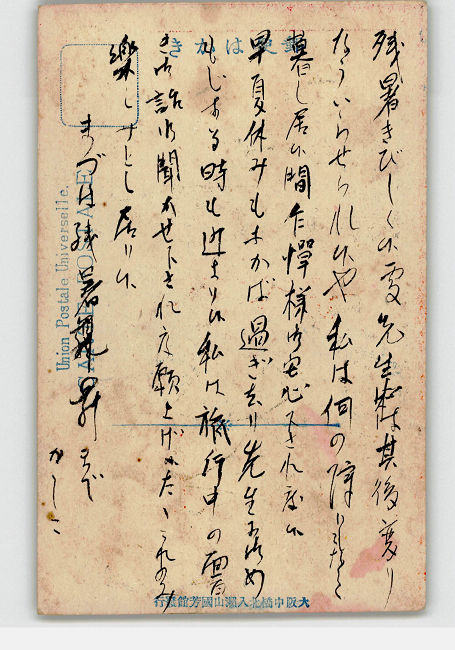 きかは便郵
残暑きびしく候處先生には其後変り
なういらせられ候や私は何の障りもなく
暮し居候間乍憚様御安心下され度候
早夏休みもなかば過ぎ去り先生に御め
もじする時も近まり候私は旅行中の面白
き御話御聞かせ下され度願上げ候たゞこれのみ
楽しみとし居り候
まづは残暑 まで
かしこ
Union Postale Universelle.
CARTE POSTALE